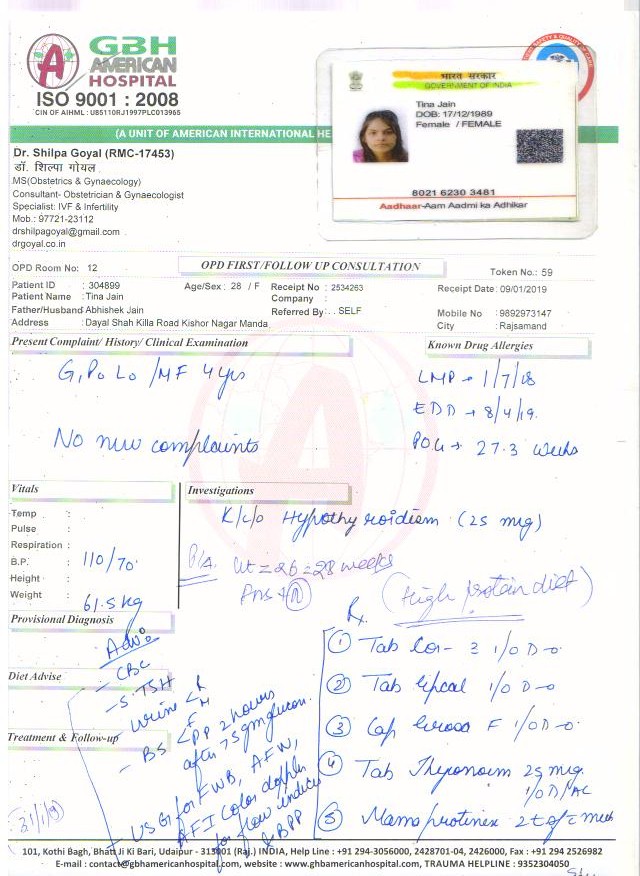 GBH
AMERICAN
HOSPITAL
ISO 9001 : 2008
CIN OF AIHML : U85110RJ1997PLC013965
भारत सरकार
GOVERNMENT OF INDIA
Tina Jain
DOB: 17/12/1989
Female / FEMALE
8021 6230 3481
Aadhaar-Aam Aadmi ka Adhikar
(A UNIT OF AMERICAN INTERNATIONAL HE
Dr. Shilpa Goyal (RMC-17453)
डॉ. शिल्पा गोयल
MS(Obstetrics & Gynaecology)
Consultant- Obstetrician & Gynaecologist
Specialist: IVF & Infertility
Mob.: 97721-23112
drshilpagoyal@gmail.com
drgoyal.co.in
OPD Room No: 12
OPD FIRST/FOLLOW UP CONSULTATION
Token No.: 59
Patient ID : 304899
Age/Sex : 28 / F
Receipt No : 2534263
Receipt Date : 09/01/2019
Patient Name : Tina Jain
Company :
Father/Husband Abhishek Jain
Referred By : . SELF
Mobile No 9892973147
Address : Dayal Shah Killa Road Kishor Nagar Manda
City : Rajsamand
Present Complaint/ History/ Clinical Examination
Known Drug Allergies
G1 P0 L0 / MF 4 yrs
LMP → 1/7/18
EDD → 8/4/19.
No new complaints
POG → 27.3 weeks
Vitals
Investigations
Temp :
Pulse :
Respiration :
B.P. : 110/70
Height :
Weight : 61.5 kg
K/c/o Hypothyroidism (25 mcg)
P/A. Ut = 26 = 28 weeks
(High protein diet)
Rx
Provisional Diagnosis
Adv:
- CBC
- S. TSH
- Urine < R
M
- BS < F
PP 2 hours
after 75 gm glucon.
Diet Advise
Treatment & Follow-up
USG for FWB, AFW,
AFI Color doppler
for flow indices
& BPP
31/1/19
① Tab Cor- 3 1/OD-0
② Tab 1/OD-0
③ Cap F 1/OD-0.
④ Tab Thyronorm 25 mcg.
1/OD/AC
⑤ Mama protinex 2 tsf c meek
101, Kothi Bagh, Bhatt Ji Ki Bari, Udaipur - 313001 (Raj.) INDIA, Help Line : +91 294-3056000, 2428701-04, 2426000, Fax : +91 294 2526982
E-mail : contact@gbhamericanhospital.com, website : www.gbhamericanhospital.com, TRAUMA HELPLINE : 9352304050